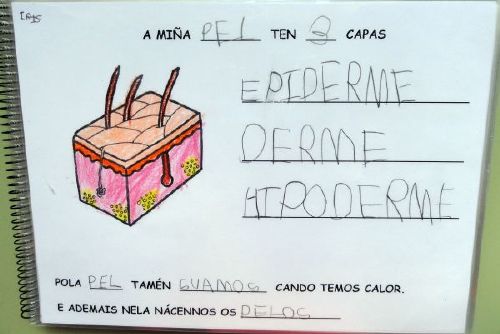 A MIÑA PEL TEN 3 CAPAS
EPIDERME
DERME
HIPODERME
POLA PEL TAMÉN SUAMOS CANDO TEMOS CALOR.
E ADEMAIS NELA NÁCENNOS OS PELOS